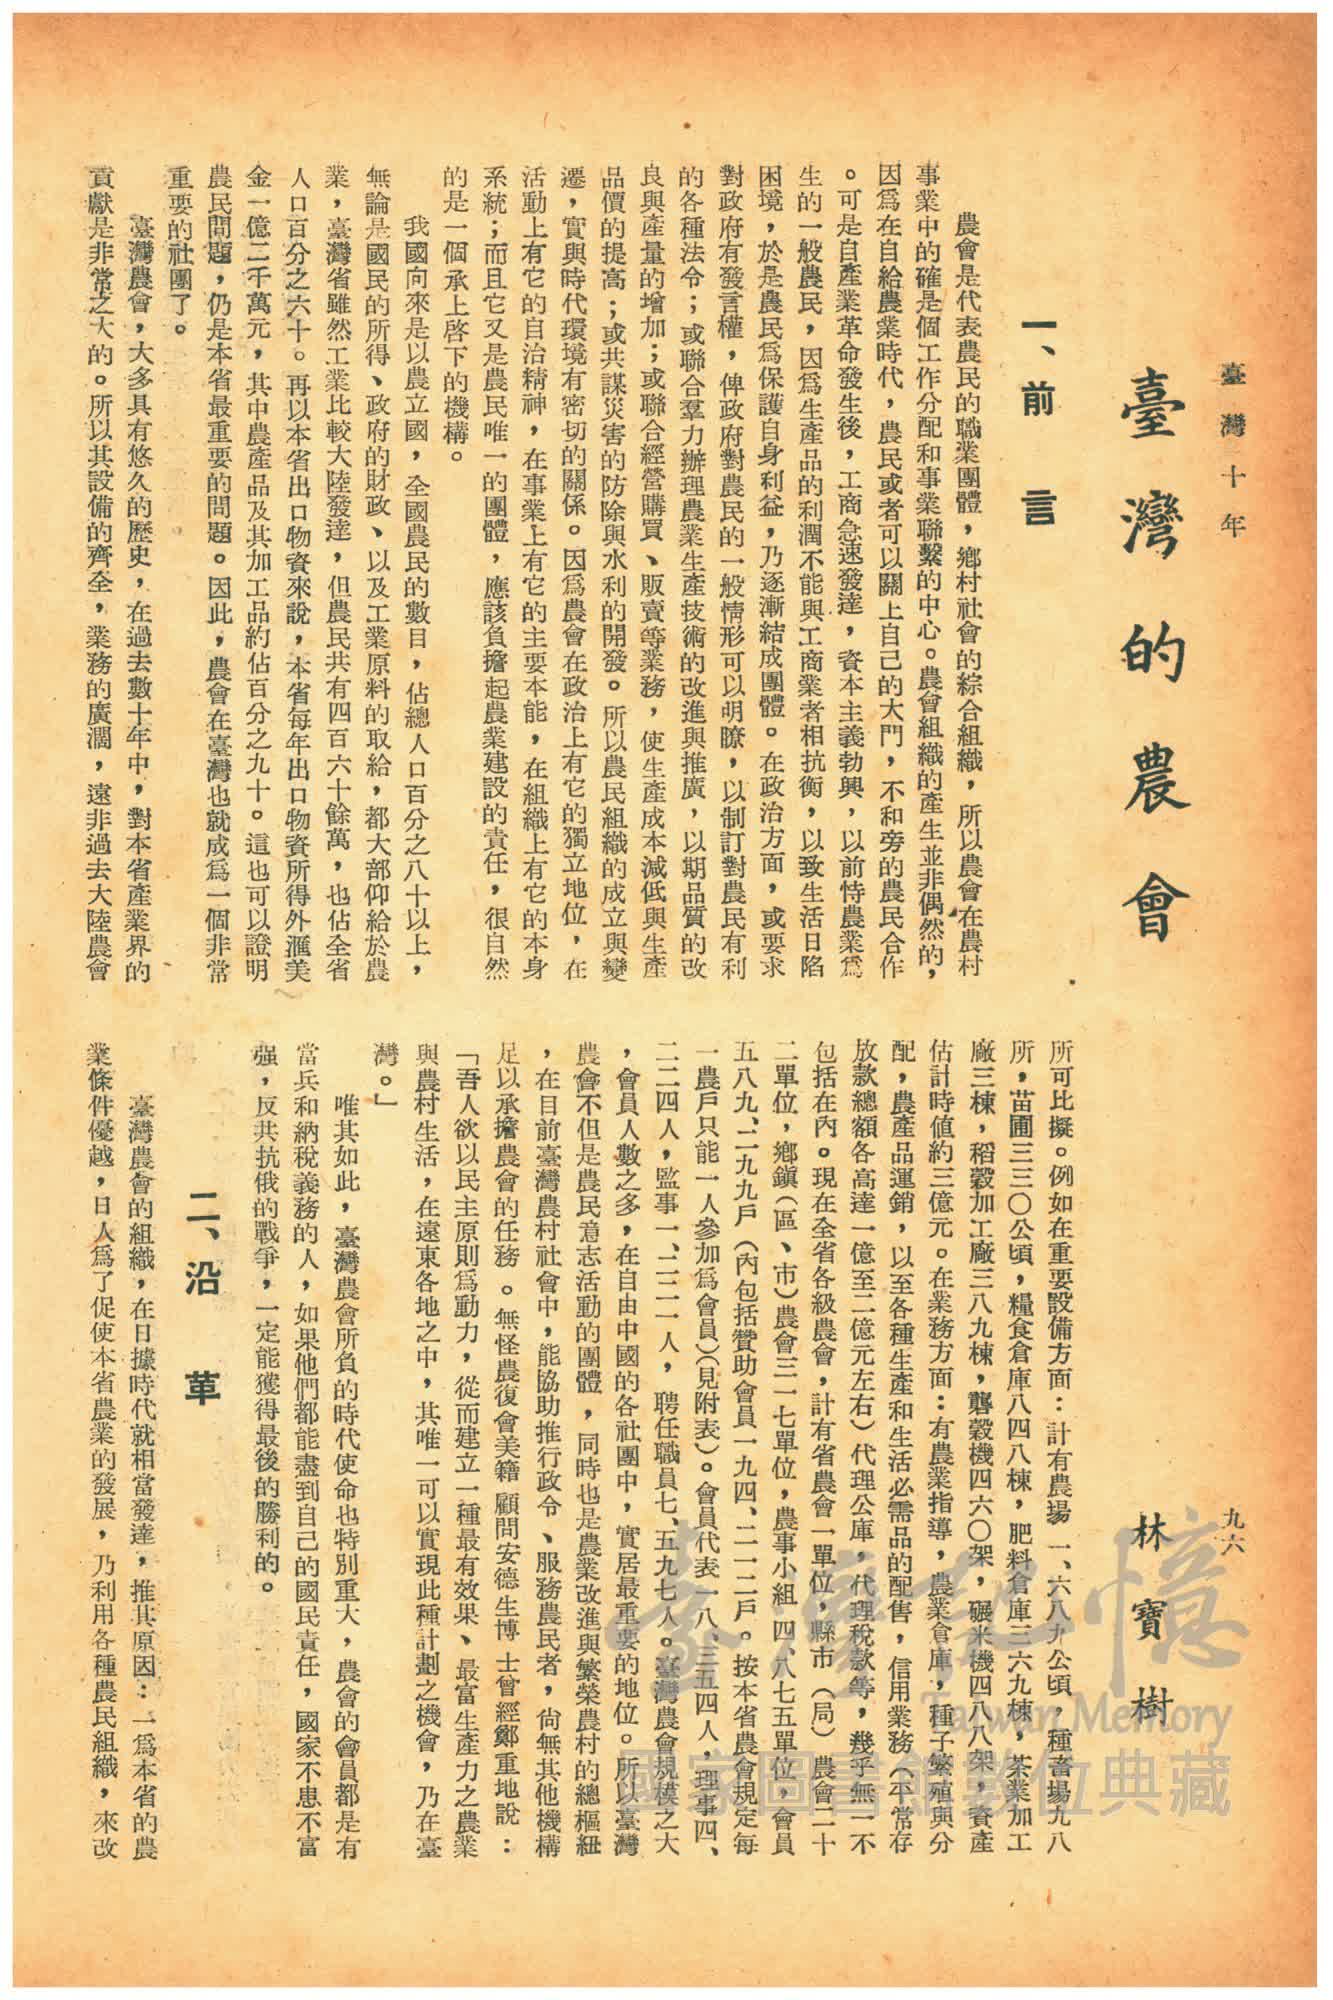 臺灣十年
九六
臺灣的農會
林寶樹
一、前言
農會是代表農民的職業團體，鄉村社會的綜合組織，所以農會在農村
事業中的確是個工作分配和事業聯繫的中心。農會組織的產生並非偶然的，
因爲在自給農業時代，農民或者可以關上自己的大門，不和旁的農民合作
。可是自產業革命發生後，工商急速發達，資本主義勃興，以前恃農業爲
生的一般農民，因爲生產品的利潤不能與工商業者相抗衡，以致生活日陷
困境，於是農民爲保護自身利益，乃逐漸結成團體。在政治方面，或要求
對政府有發言權，俾政府對農民的一般情形可以明瞭，以制訂對農民有利
的各種法令；或聯合羣力辦理農業生產技術的改進與推廣，以期品質的改
良與產量的增加；或聯合經營購買、販賣等業務，使生產成本減低與生產
品價的提高；或共謀災害的防除與水利的開發。所以農民組織的成立與變
遷，實與時代環境有密切的關係。因爲農會在政治上有它的獨立地位，在
活動上有它的自治精神，在事業上有它的主要本能，在組織上有它的本身
系統；而且它又是農民唯一的團體，應該負擔起農業建設的責任，很自然
的是一個承上啓下的機構。
我國向來是以農立國，全國農民的數目，佔總人口百分之八十以上，
無論是國民的所得、政府的財政、以及工業原料的取給，都大部仰給於農
業，臺灣省雖然工業比較大陸發達，但農民共有四百六十餘萬，也佔全省
人口百分之六十。再以本省出口物資來說，本省每年出口物資所得外滙美
金一億二千萬元，其中農產品及其加工品約佔百分之九十。這也可以證明
農民問題，仍是本省最重要的問題。因此，農會在臺灣也就成爲一個非常
重要的社團了。
臺灣農會，大多具有悠久的歷史，在過去數十年中，對本省產業界的
貢獻是非常之大的。所以其設備的齊全，業務的廣濶，遠非過去大陸農會
所可比擬。例如在重要設備方面：計有農場一、六八九公頃，種畜場九八
所，苗圃三三〇公頃，糧食倉庫八四八棟，肥料倉庫三六九棟，茶業加工
廠三棟，稻穀加工廠三八九棟，礱穀機四六〇架，碾米機四八八架，資產
估計時值約三億元。在業務方面：有農業指導，農業倉庫，種子繁殖與分
配，農產品運銷，以至各種生產和生活必需品的配售，信用業務（平常存
放款總額各高達一億至二億元左右）代理公庫，代理稅款等，幾乎無一不
包括在內。現在全省各級農會，計有省農會一單位，縣市（局）農會二十
二單位，鄉鎭（區、市）農會三一七單位，農事小組四、八七五單位，會員
五八九、二九九戶（內包括贊助會員一九四、二一二戶。按本省農會規定每
一農戶只能一人參加爲會員）（見附表）。會員代表一八、三五四人，理事四、
二二四人，監事一、二二一人，聘任職員七、五九七人。臺灣農會規模之大
，會員人數之多，在自由中國的各社團中，實居最重要的地位。所以臺灣
農會不但是農民意志活動的團體，同時也是農業改進與繁榮農村的總樞紐
，在目前臺灣農村社會中，能協助推行政令、服務農民者，尙無其他機構
足以承擔農會的任務。無怪農復會美籍顧問安德生博士曾經鄭重地說：
「吾人欲以民主原則爲動力，從而建立一種最有效果、最富生產力之農業
與農村生活，在遠東各地之中，其唯一可以實現此種計劃之機會，乃在臺
灣。」
唯其如此，臺灣農會所負的時代使命也特別重大，農會的會員都是有
當兵和納稅義務的人，如果他們都能盡到自己的國民責任，國家不患不富
强，反共抗俄的戰爭，一定能獲得最後的勝利的。
二、沿革
臺灣農會的組織，在日據時代就相當發達，推其原因：一爲本省的農
業條件優越，日人爲了促使本省農業的發展，乃利用各種農民組織，來改
臺灣記憶
Taiwan Memory
國家圖書館數位典藏